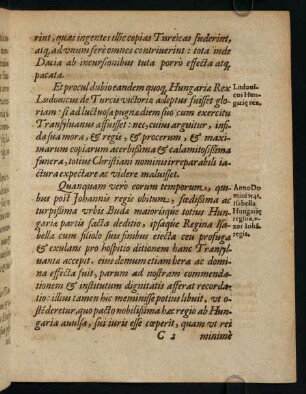 rint, quas ingentes illic copias Turcicas fuderint,
atq́; ad vnum ferè omnes contriuerint: tota inde
Dacia ab incursionibus tuta porrò effecta atq́;
pacata.
Et procul dubio eandem quoq; Hungariæ Rex
Ludouicus de Turcis victoria adeptus fuisset glo-
riam: si ad luctuosa pugnā diem suo cum exercitu
Transyluanus affuisset: nec, cuius arguitur, insi-
da sua mora, & regis, & procerum, & maxi-
marum copiarum acerbissima & calamitosissima
funera, totius Christiani nominis irreparabili ia-
ctura expectare ac videre maluisset.
Ludoui-
cus Hun-
gariæ rex.
Quanquam verò eorum temporum, qui-
bus post Iohannis regis obitum, fœdissima ac
turpissima vrbis Buda maiorisque totius Hun-
garia partis facta deditio, ipsaque Regina Isa-
bella cum filiolo suis finibus eiecta ceu profuga
& exulans pro hospitio ditionem hanc Transyl-
uania accepit. eius domum etiam bera ac domi-
na effecta fuit, parum ad nostram commenda-
tionem & institutum dignitatis afferat recorda-
tio: illius tamen hic meminisse potius libuit, vt o-
stēderetur, quo pacto nobilissima hæc regio ab Hun-
garia auulsa, sui iuris esse cœperit, quam vt rei
Anno Do
mini 1541.
Isabella
Hungariæ
regina, v-
xor Iohā.
regis.
C 2 minimè